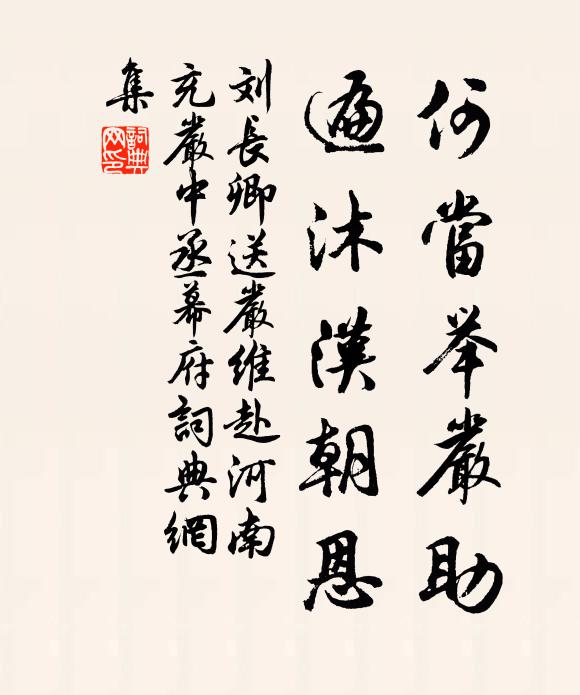 何當举嚴助
遍沐漢朝恩
刘長卿送嚴維赴河南
充嚴中丞幕府詞典網
集
詞典网印